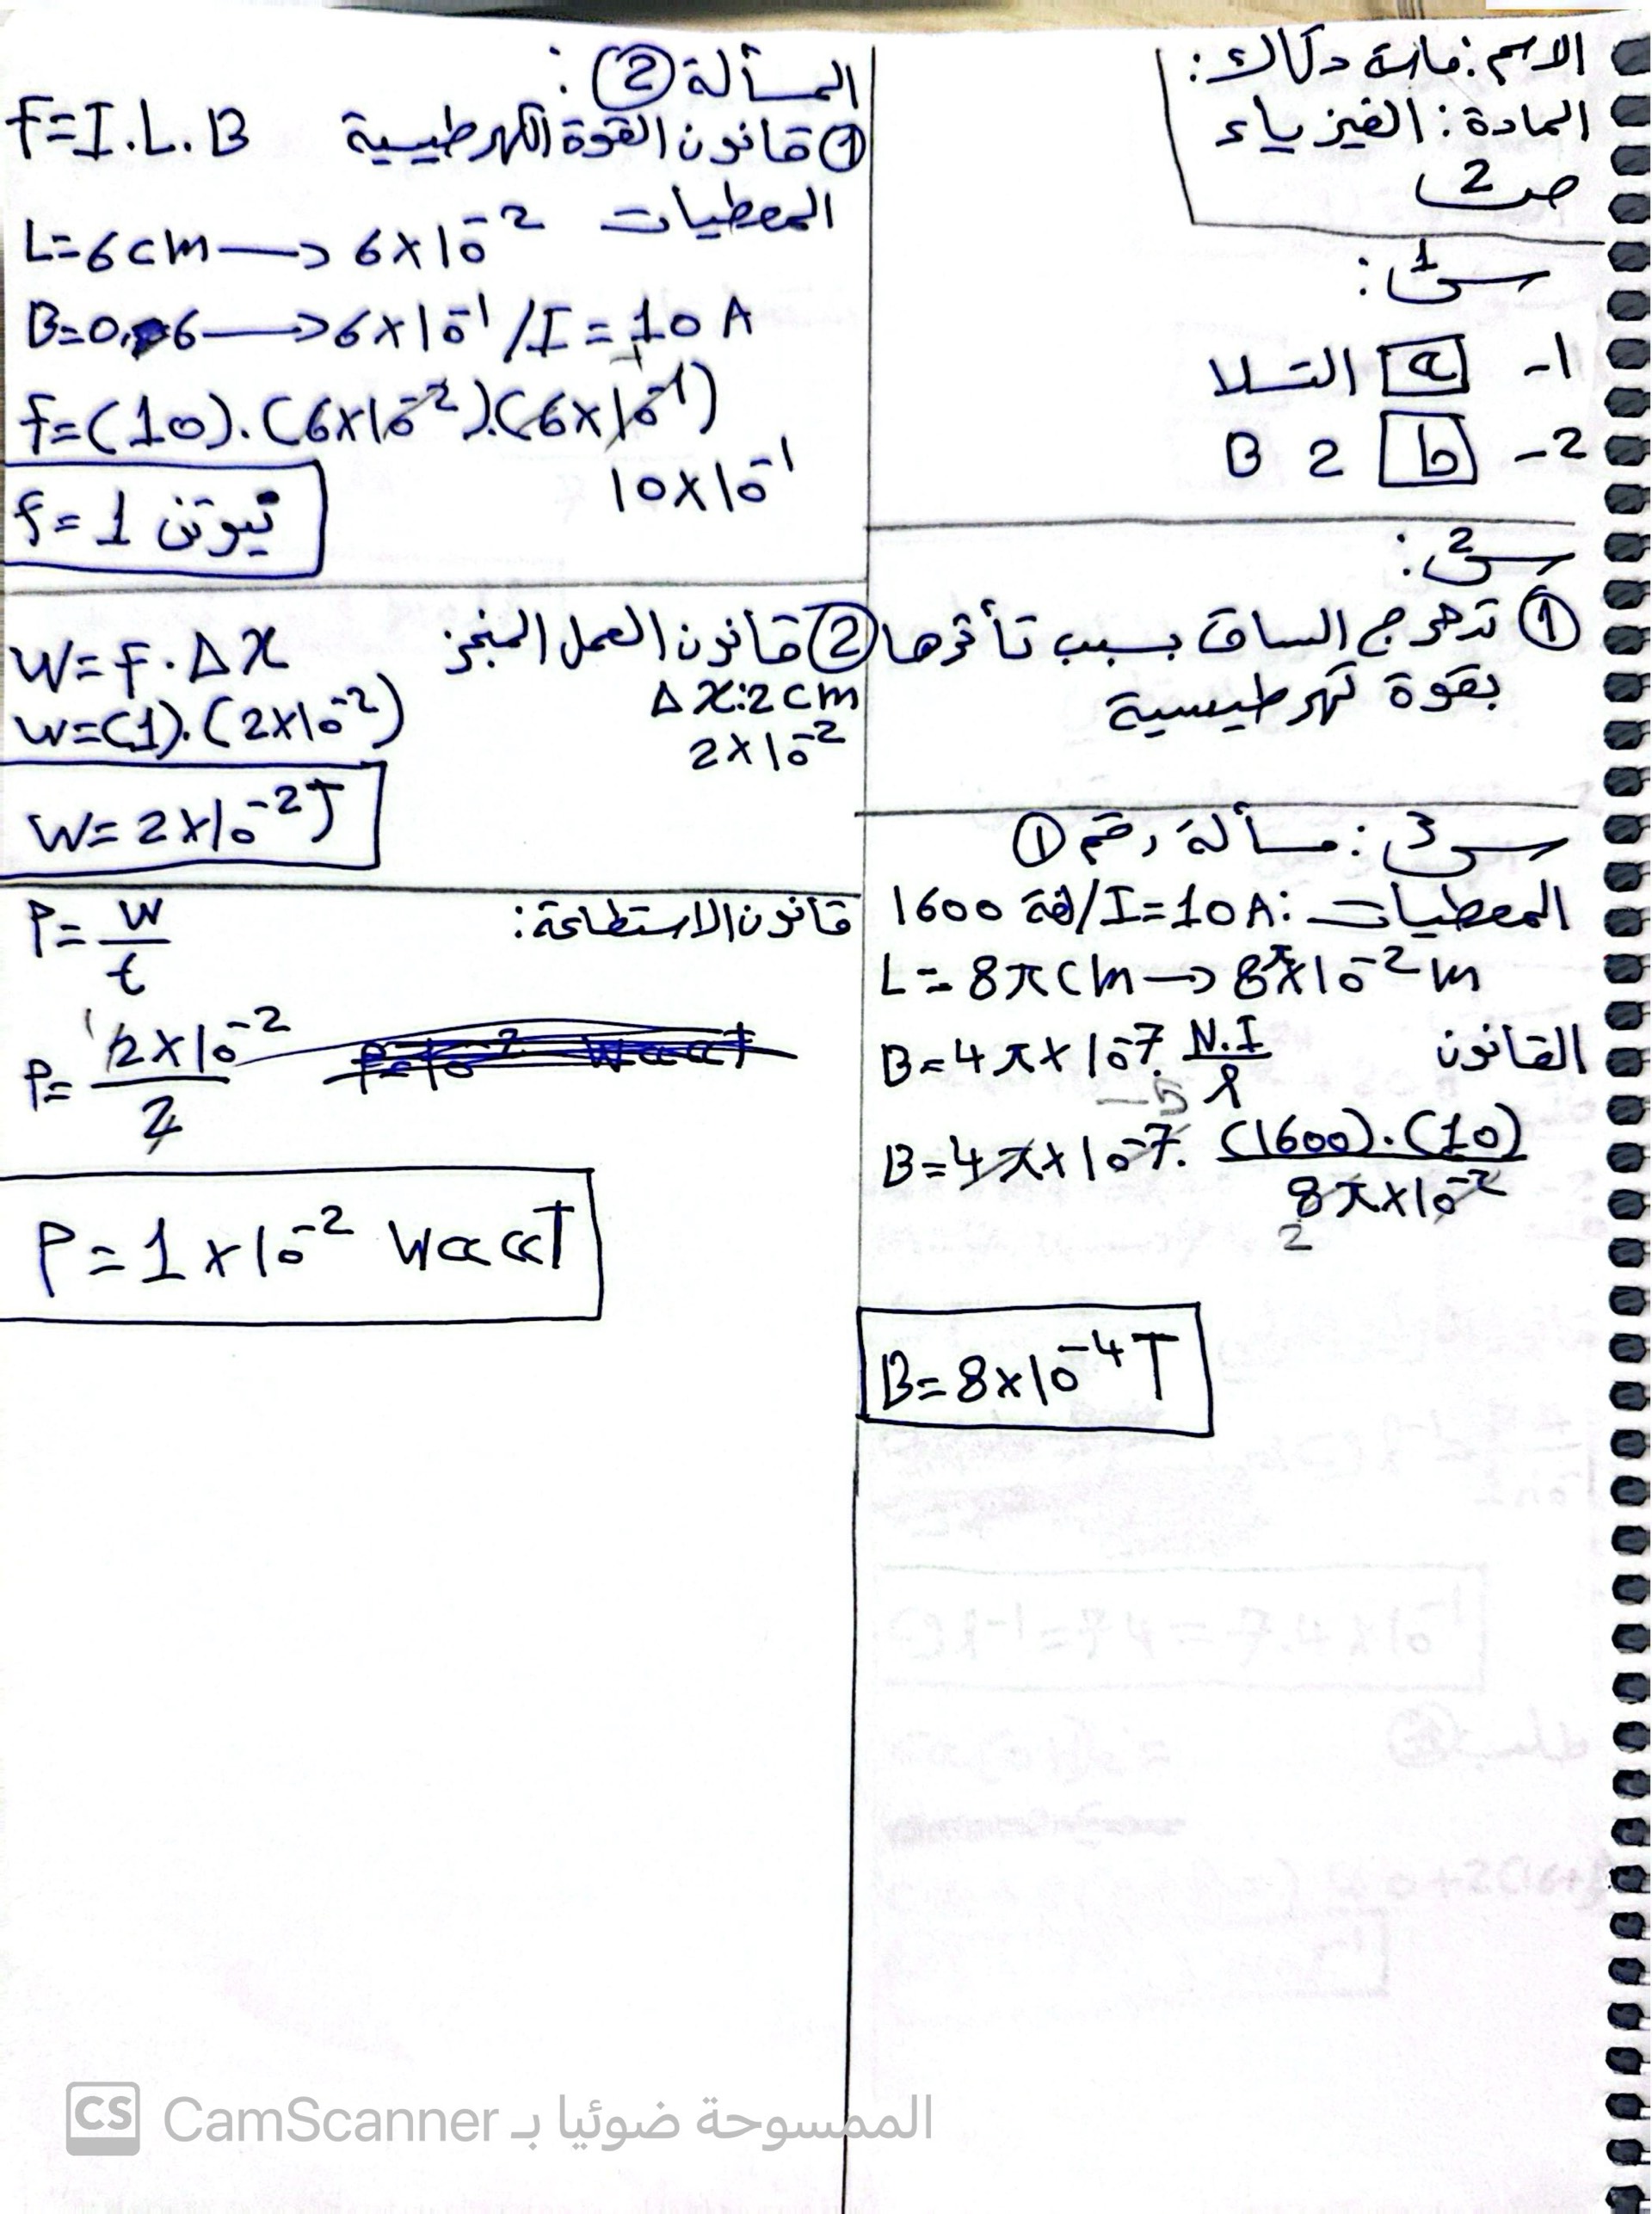 الاسم: مارية دكاك:
المادة: الفيزياء
صف 2
س1:
1- a التسلا
2- b 2 B
س2:
① تدحرج الساق بسبب تأثرها
بقوة كهرطيسية
س3: مسألة رقم ①
المعطيات: I=10A / لفة 1600
L = 8πcm → 8π×10⁻² m
القانون B = 4π×10⁻⁷. N.I / l
-5
B = 4π×10⁻⁷. (1600).(10) / 8π×10⁻²
2
B = 8×10⁻⁴ T
المسألة ②:
① قانون القوة الكهرطيسية F=I.L.B
المعطيات
L=6cm → 6×10⁻²
B=0,6 → 6×10⁻¹ / I = 10 A
f=(10).(6×10⁻²).(6×10⁻¹)
10×10⁻¹
f= 1 نيوتن
② قانون العمل المنجز W=F.Δx
Δx:2cm
2×10⁻²
w=(1).(2×10⁻²)
W= 2×10⁻² J
قانون الاستطاعة: P= W / t
P= 2×10⁻² / 2
1
P = 1×10⁻² WaaT
CS CamScanner الممسوحة ضوئيا بـ